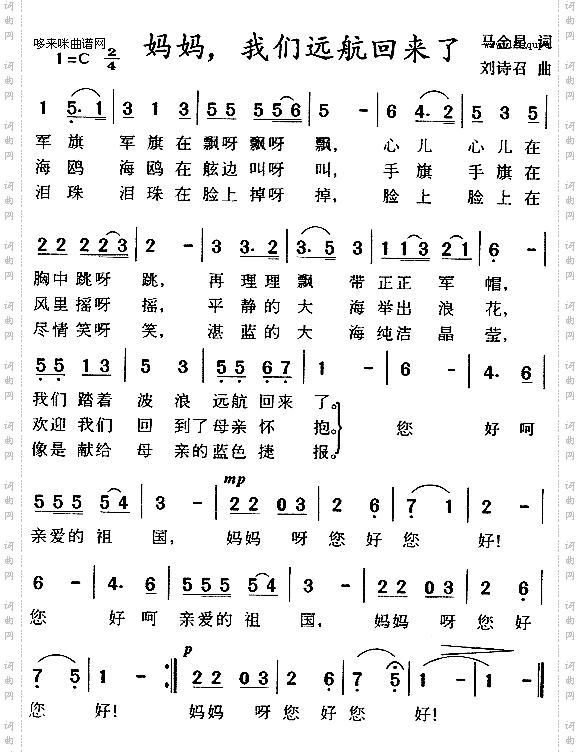 哆来咪曲谱网
1=C 2/4
妈妈，我们远航回来了
马金星 词
刘诗召 曲
1 5· 1 | 3 1 3 | 5 5 5 5 6 | 5 - | 6 4· 2 | 5 3 5 |
军旗 军旗在飘呀飘呀 飘， 心儿 心儿在
海鸥 海鸥在舷边叫呀 叫， 手旗 手旗在
泪珠 泪珠在脸上掉呀 掉， 脸上 脸上在
2 2 2 2 3 | 2 - | 3 3· 2 | 3· 5 3 | 1 1 3 2 1 | 6 - |
胸中跳呀 跳， 再理理飘 带正正 军 帽，
风里摇呀 摇， 平静的大 海举出 浪 花，
尽情笑呀 笑， 湛蓝的大 海纯洁 晶 莹，
5 5 1 3 | 5 3 | 5 5 5 6 7 | 1 - | 6 - | 4· 6 |
我们踏着 波浪 远航回来 了。 您 好呵
欢迎我们 回到了母亲怀 抱。
像是献给 母亲的蓝色捷 报。
mp
5 5 5 5 4 | 3 - | 2 2 0 3 | 2 6 | 7 1 | 2 - |
亲爱的祖 国， 妈妈 呀您好您 好！
6 - | 4· 6 | 5 5 5 5 4 | 3 - | 2 2 0 3 | 2 6 |
您 好呵亲爱的祖 国， 妈妈 呀您好
p
7 5 | 1 - :| 2 2 0 3 | 2 6 | 7 5 | 1 - | 1 - |
您 好！ 妈妈 呀您好您 好！
词曲网
词曲网
词曲网
词曲网
词曲网
词曲网
词曲网
词曲网